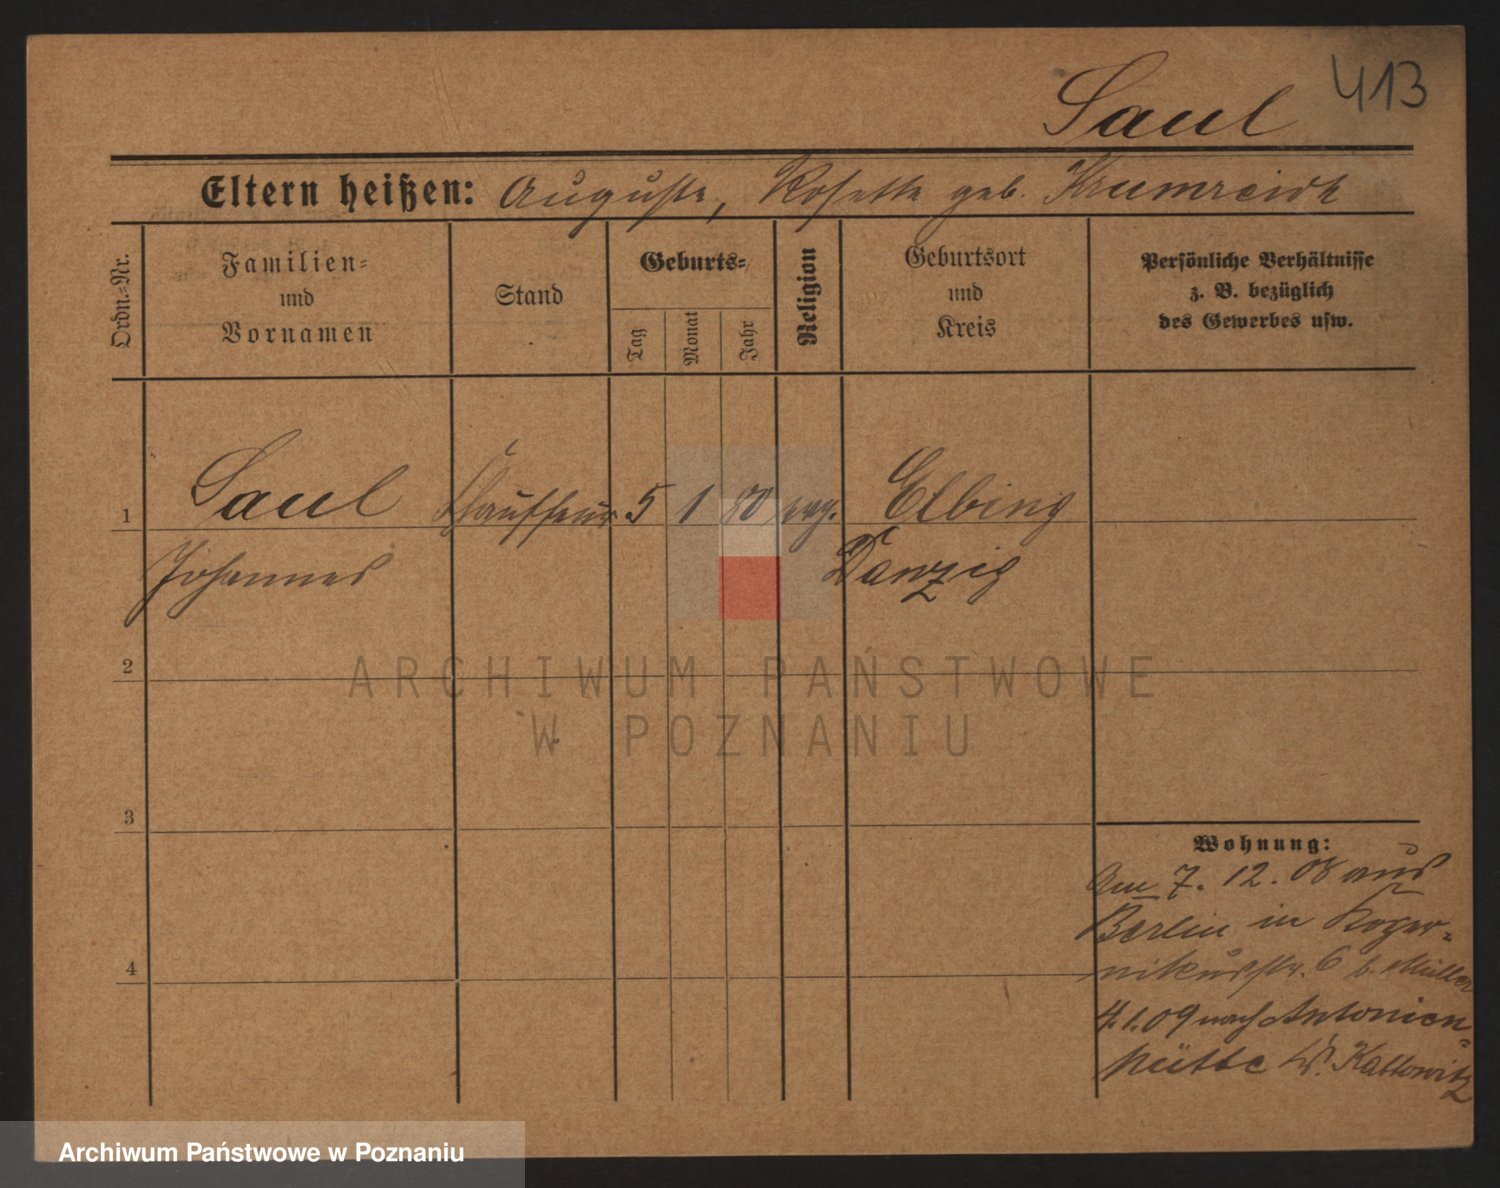 413
Saul
Eltern heißen: Auguste, Rosette geb. Krumreich
Ordn.-Nr.
Familien-
und
Vornamen
Stand
Geburts-
Tag
Monat
Jahr
Religion
Geburtsort
und
Kreis
Persönliche Verhältnisse
z. B. bezüglich
des Gewerbes usw.
1 Saul Chauffeur 5 1 80 evg. Elbing
Johannes Danzig
2
3
4
Wohnung:
Am 7. 12. 08 aus
Berlin in Koper-
nikusstr. 6 b. Müller
4.1.09 nach Antonien-
hütte Kr. Kattowitz
ARCHIWUM PAŃSTWOWE
W POZNANIU
Archiwum Państwowe w Poznaniu